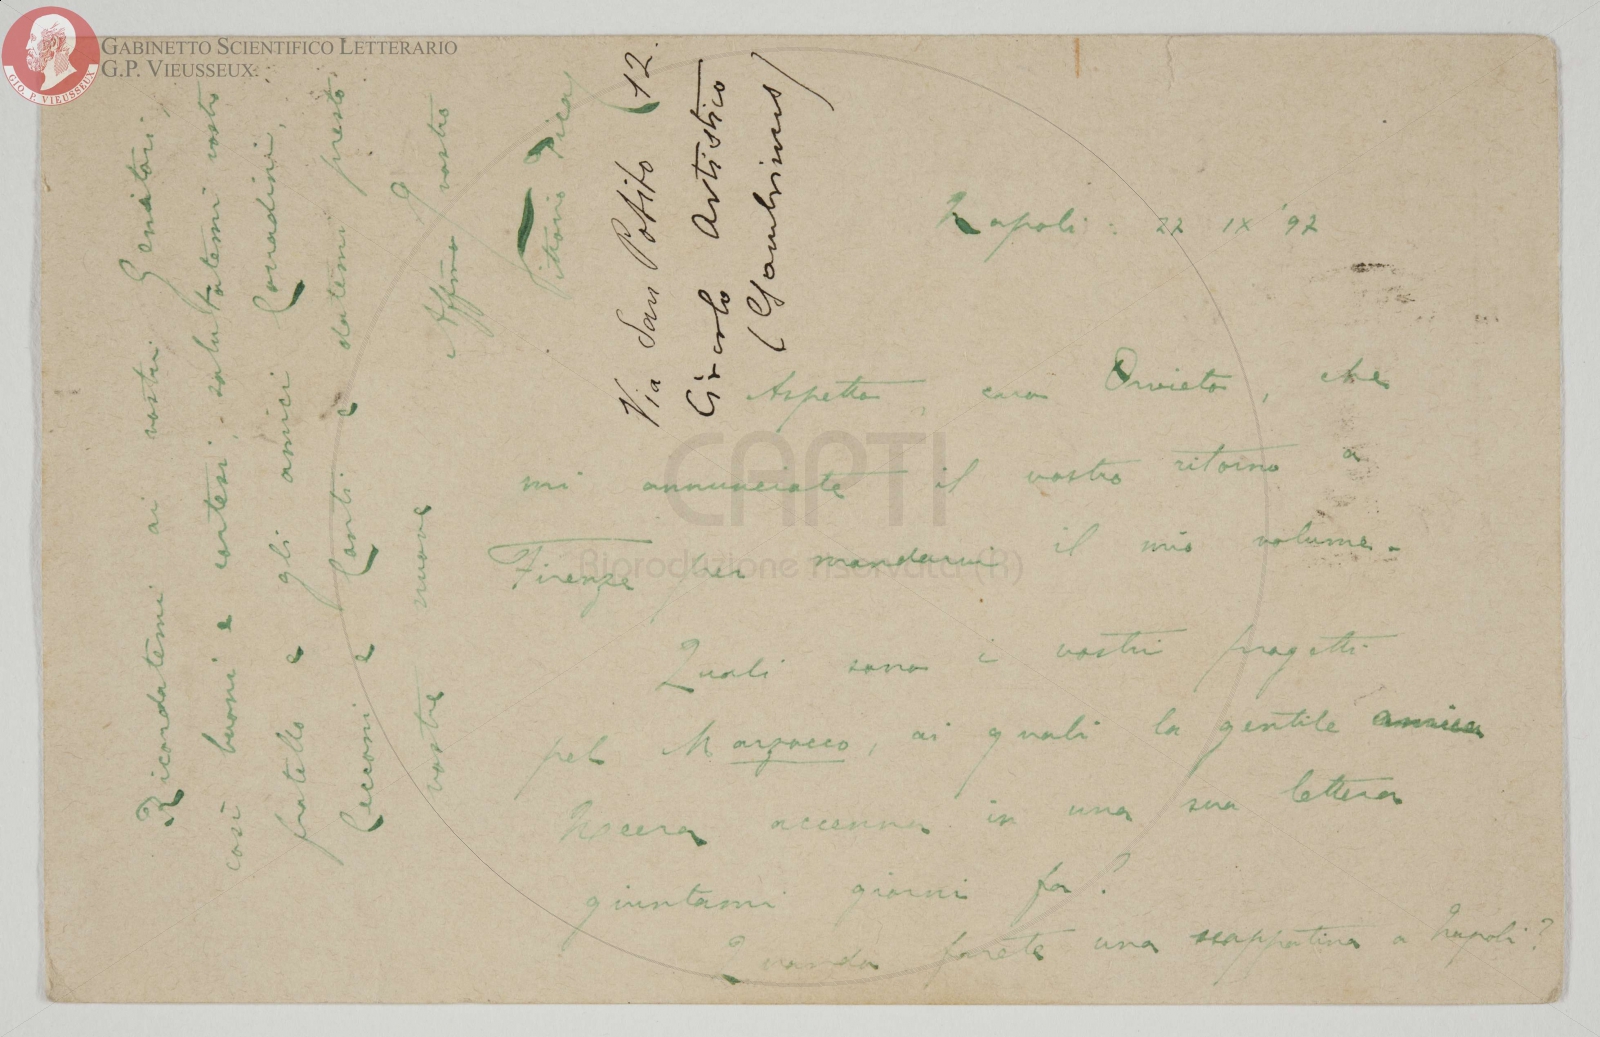 GABINETTO SCIENTIFICO LETTERARIO
G.P. VIEUSSEUX
GIO. P. VIEUSSEUX
Napoli: 22 IX '97
Aspetto, caro Orvieto, che
mi annunciate il vostro ritorno a
Firenze per mandarvi il mio volume.
Quali sono i vostri progetti
pel Marzocco, ai quali la gentile amica
Nocera accenna in una sua lettera
giuntami giorni fa?
Quando farete una scappatina a Napoli?
Ricordatemi ai vostri Genitori,
così buoni e cortesi, salutatemi vostro
fratello e gli amici Corradini,
Cecconi e Conti e datemi presto
vostre nuove
Affmo vostro
Vittorio Pica
Via San Potito 12.
Circolo Artistico
(Gambrinus)
CAPTI
Riproduzione riservata (R)